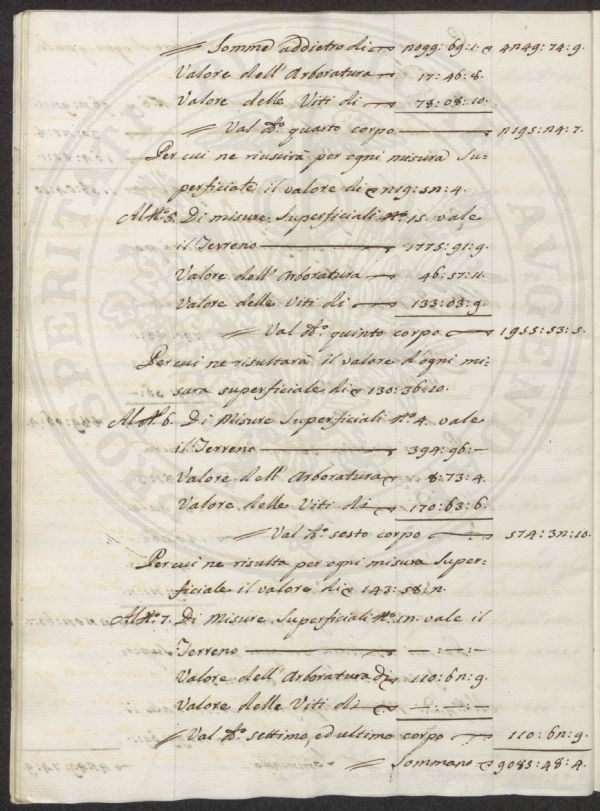 Somme addietro di 2099:69:1. 4249:74:9.
Valore dell'Arboratura 17:46:8.
Valore delle Viti di 78:08:10.
Val d.o quarto corpo 2195:24:7.
Per cui ne riuscirà per ogni misura Su=
perficiale il valore di 219:52:4.
Al N.o 5. Di misure Superficiali N.o 15. vale
il Terreno 1775:91:9.
Valore dell'Arboratura 46:57:11.
Valore delle Viti di 133:03:9.
Val d.o quinto corpo 1955:53:5.
Per cui ne risultarà il valore d'ogni mi=
sura superficiale di 130:36:10.
Al N.o 6. Di Misure Superficiali N.o 4. vale
il Terreno 394:96:—
Valore dell'Arboratura 8:73:4.
Valore delle Viti di 170:63:6.
Val d.o sesto corpo 574:32:10.
Per cui ne risulta per ogni misura Super=
ficiale il valore di 143:58:2.
Al N.o 7. Di Misure Superficiali N.o 12. vale il
Terreno —:—:—
Valore dell'Arboratura di 110:62:9.
Valore delle Viti di —:—:—
Val d.o settimo, ed ultimo corpo 110:62:9.
Sommano 9085:48:4.
PROSPERITATI AUGENDAE